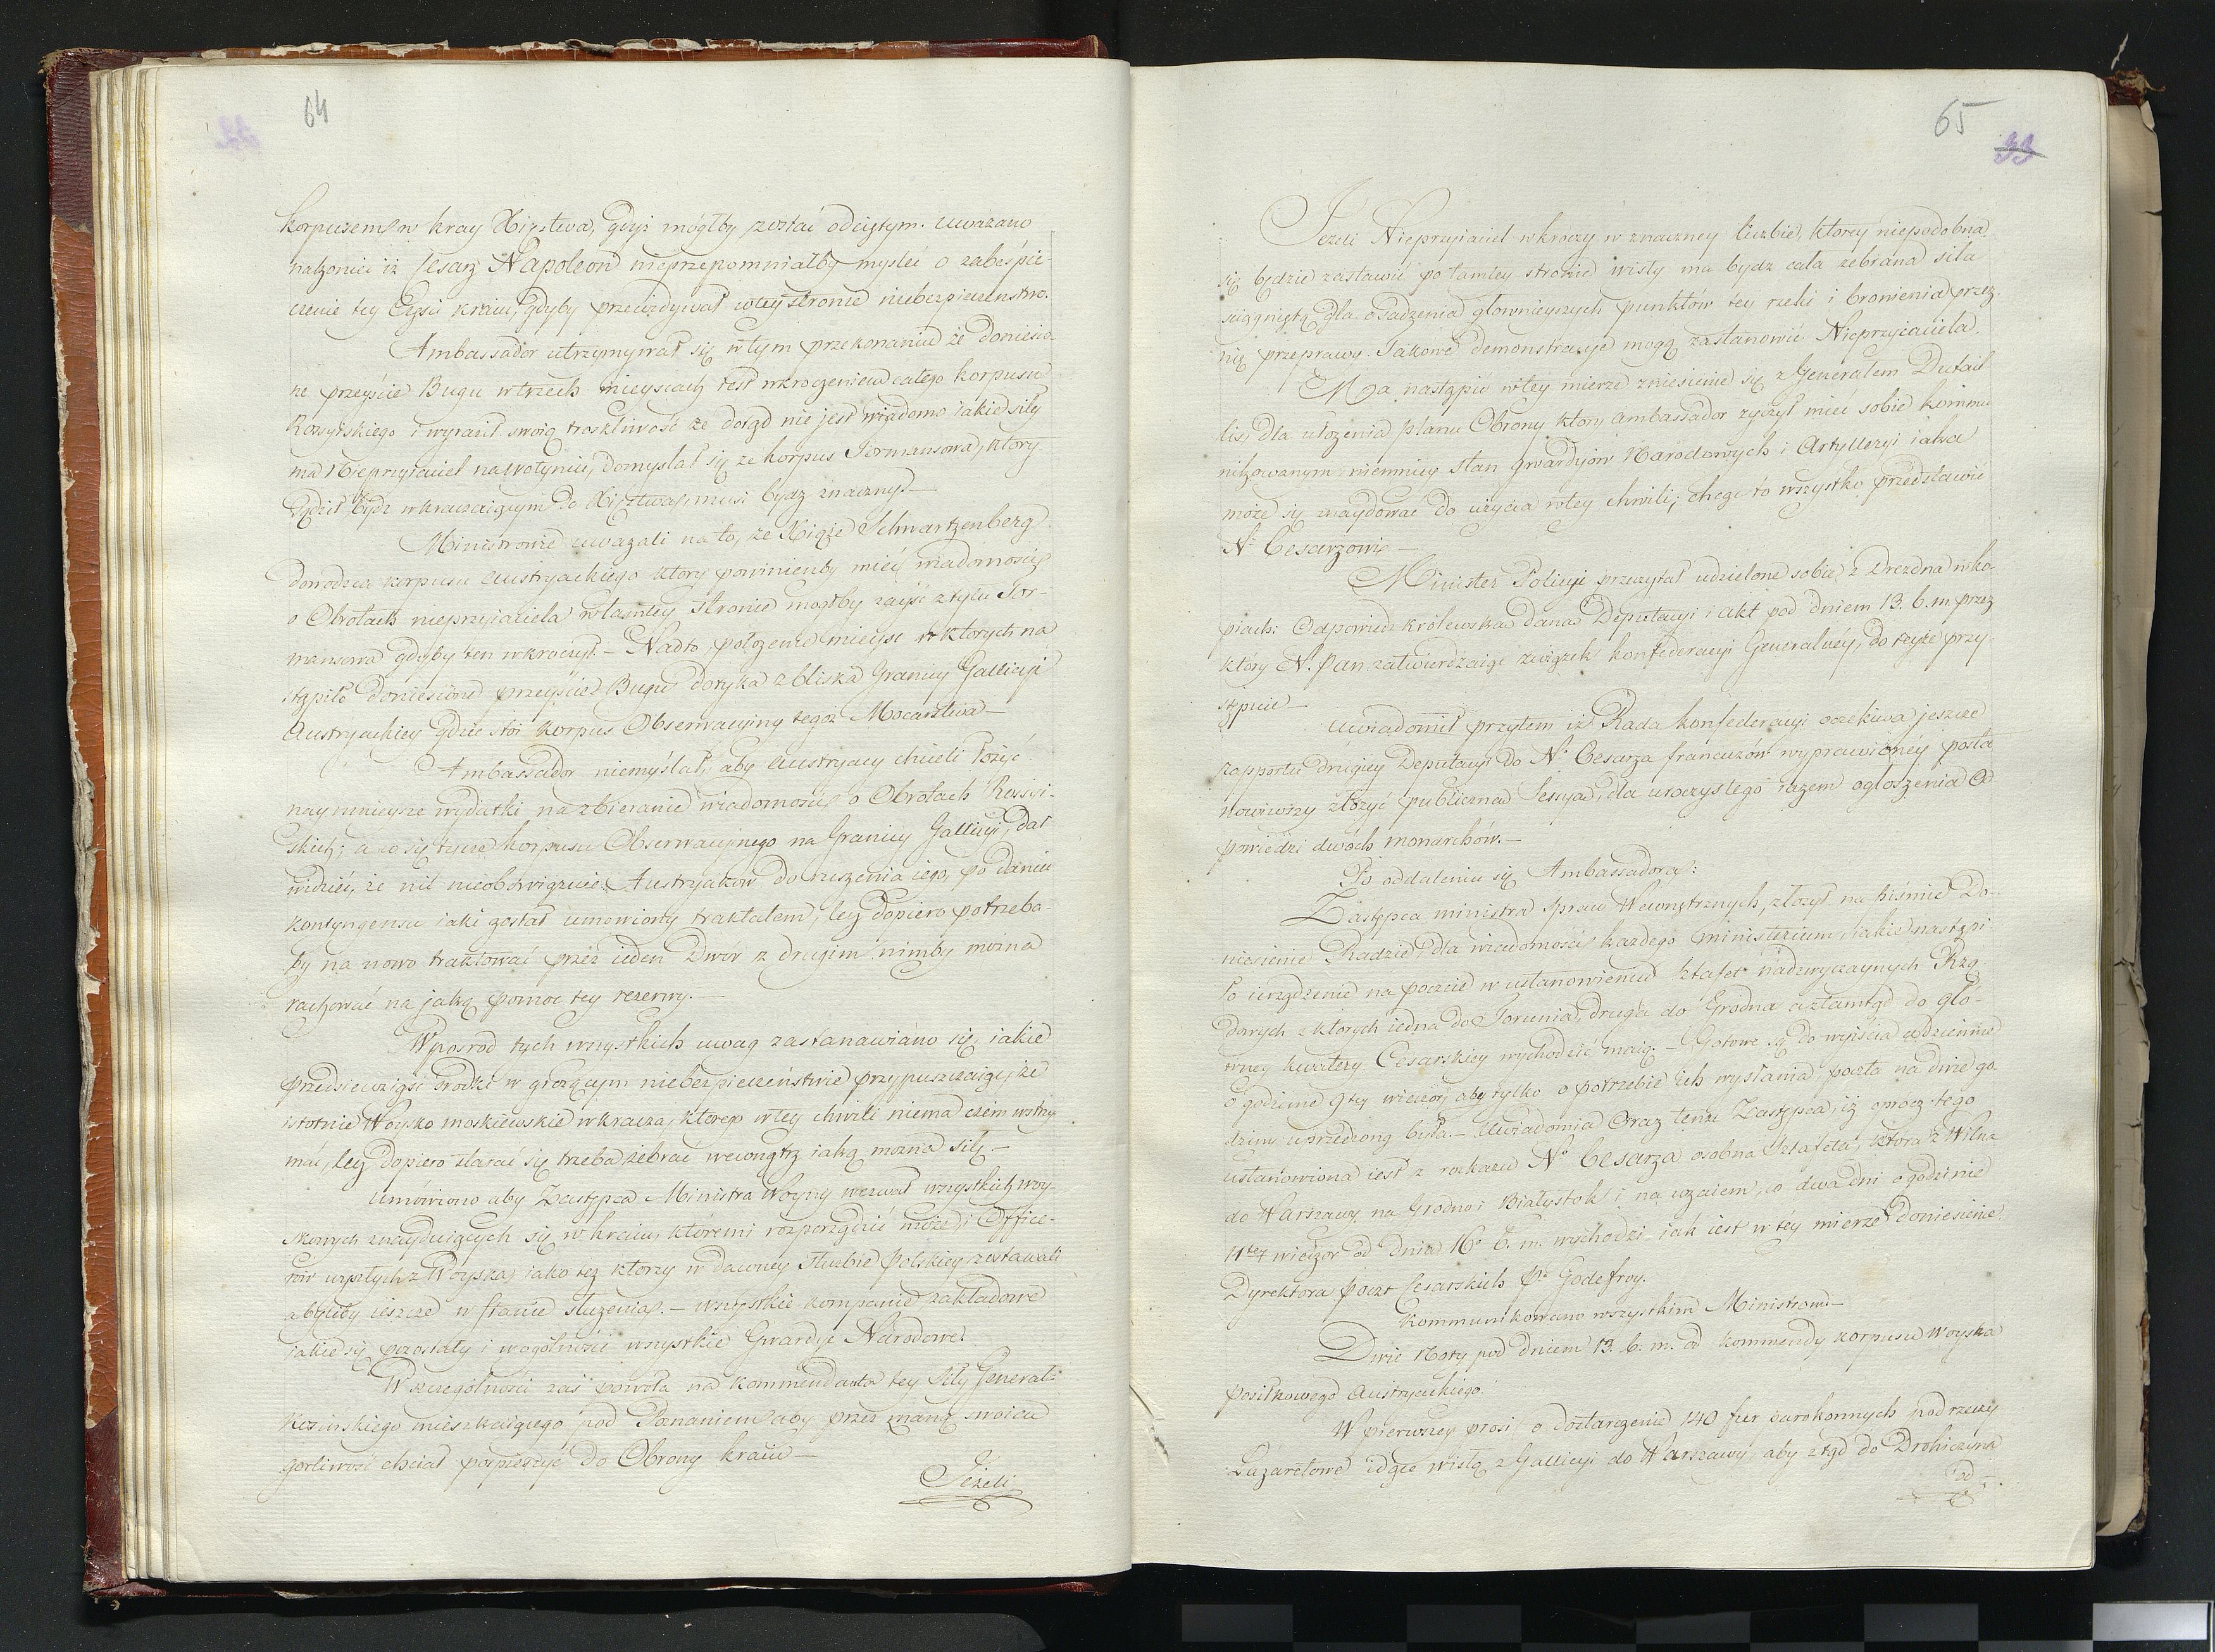 64
korpusem w kray Xięstwa, gdyż mógłby zostać odciętym. Uważano
nakoniec iż Cesarz Napoleon nieprzepomniałby myśleć o zabeśpie-
czenie tey Części kraiu, gdyby przewidywał w tey stronie niebezpieczeństwo.
Ambassador utrzymywał się w tym przekonaniu że doniesio-
ne przeyście Bugu w trzech mieyscach iest wkroczeniem całego korpusu
Rossyiskiego i wyraził swoią troskliwość że dotąd nie jest wiadomo iakie siły
ma Nieprzyiaciel na Wołyniu, domyślał się że korpus Tormansowa, który
sądził bydz wkraczaiącym do Xięztwa, musi bydz znaczny.—
Ministrowie uważali na to, że Xiąże Schwartzenberg
dowódzca korpusu Austryackiego który powinienby mieć wiadomości
o Obrotach nieprzyiaciela w tamtey stronie mogłby zaiść z tyłu Tor-
mansowa gdyby ten wkroczył.— Nadto położenie mieysc w których na
stąpiło doniesione przeyście Bugu dotyka zbliska Granicy Gallicyi
Austryackiey gdzie stoi korpus Obserwacyiny tegoż Mocarstwa—
Ambassador niemyślał, aby Austryacy chcieli łożyć
naymnieysze wydatki na zbieranie wiadomości o Obrotach Rossyi-
skich; a co się tycze korpusu Obserwacyinego na Granicy Gallicyi, dał
widzieć, że nic nieobowiązuie Austryaków do ruszenia iego, po daniu
kontyngensu iaki został umowiony traktatem, lecz dopiero potrzeba-
by na nowo traktować przez ieden Dwór z drugim nimby można
rachować na jaką pomoc tey rezerwy.—
Wpośrod tych wszystkich uwag zastanawiano się, iakie
przedsiewziąść środki w grożącym niebezpieczeństwie przypuszczaiąc, że
istotnie Woysko moskiewskie wkracza, którego w tey chwili niema czem wstrzy-
mać, lecz dopiero starać się trzeba zebrać wewnątrz iaką można siłę.—
Umówiono aby Zastępca Ministra Woyny wezwał wszystkich woy-
skowych znayduiących się w kraiu, któremi rozporządzić może, i Office-
rów wyszłych z Woyska, iako też którzy w dawney służbie Polskiey zostawali
a byliby ieszcze w stanie służenia.— wszystkie kompanie zakładowe
iakie się pozostały i w ogólności wszystkie Gwardye Narodowe.
W szczególności zaś powoła na kommendanta tey siły Generała
Kosinskiego mieszkaiącego pod Poznaniem aby przez znaną swoię
gorliwość chciał pośpieszyć do Obrony kraiu—
Jeżeli
65
33
Jeżeli Nieprzyiaciel wkroczy w znaczney liczbie, którey niepodobna
się będzie zastawić po tamtey stronie wisły ma bydz cała zebrana siła
sciągniętą dla osadzenia głownieyszych punktów tey rzeki i bronienia przez
nię przeprawy. Takowe demonstracye mogą zastanowić Nieprzyiaciela.
Ma nastąpić w tey mierze zniesienie się z Generałem Dutail
lis, dla ułożenia planu Obrony który Ambassador życzył mieć sobie kommu
nikowanym niemniey stan gwardyiów Narodowych i Artylleryi iaka
może się znaydować do użycia w tey chwili; chcąc to wszystko przedstawić
N. Cesarzowi—
Minister Policyi przeczytał udzielone sobie z Drezna w ko-
piach: Odpowiedz królewską daną Deputacyi i akt pod dniem 13. b. m. przez
który N. Pan zatwierdzaiąc związek konfederacyi Generalney, do teyże przy-
stępuie—
Uwiadomił przytem iż Rada konfederacyi oczekiwa jeszcze
rapportu drugiey Deputacyi do N. Cesarza francuzów wyprawioney posta
nowiwszy złożyć publiczną Sessyą, dla uroczystego razem ogłoszenia Od
powiedzi dwóch monarchów.—
Po oddaleniu się Ambassadora:
Zastępca ministra Spraw Wewnętrznych, złożył na piśmie Do-
niesienie Radzie, dla wiadomości każdego ministerium, iakie nastąpi-
ło urządzenie na poczcie w ustanowieniu sztafet nadzwyczaynych Rzą-
dowych z których iedna do Torunia, druga do Grodna a ztamtąd do głó-
wney kwatery Cesarskiey wychodzić maią.— Gotowe są do wyiścia codziennie
o godzinie 9tey wieczór, aby tylko o potrzebie ich wysłania, poczta na dwie go
dziny uprzedzoną była.— Uwiadomia Oraz tenże Zastępca, iż oprocz tego
ustanowiona iest z rozkazu No. Cesarza osobna Sztafeta, która z Wilna
do Warszawy na Grodno i Białystok i na wzaiem, co dwa dni o godzinie
11tey wieczor od dnia 16o. b. m. wychodzi iak iest w tey mierze doniesienie
Dyrektora poczt Cesarskich Po. Godefroy.
Kommunikowano wszystkim Ministrom—
Dwie Noty pod dniem 13. b. m. od kommendy korpusu Woyska
posiłkowego Austryackiego.
W pierwszey prosi o dostarczenie 140 fur parokonnych pod rzeczy
Lazaretowe idące wisłą z Gallicyi do Warszawy, aby ztąd do Drohiczyna
od